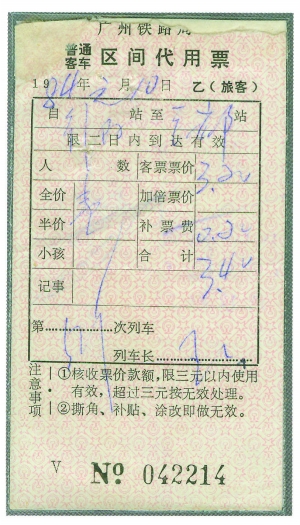 广州铁路局
普通客车 区间代用票
1984年 月10日 乙(旅客)
自 站至 站
限二日内到达有效
人数 客票票价 3.20
全价 壹 加倍票价
半价 补票费 0.20
小孩 合计 3.40
记事
第 次列车
列车长
注意事项 ①核收票价款额,限三元以内使用
有效,超过三元按无效处理。
②撕角、补贴、涂改即做无效。
V No 042214